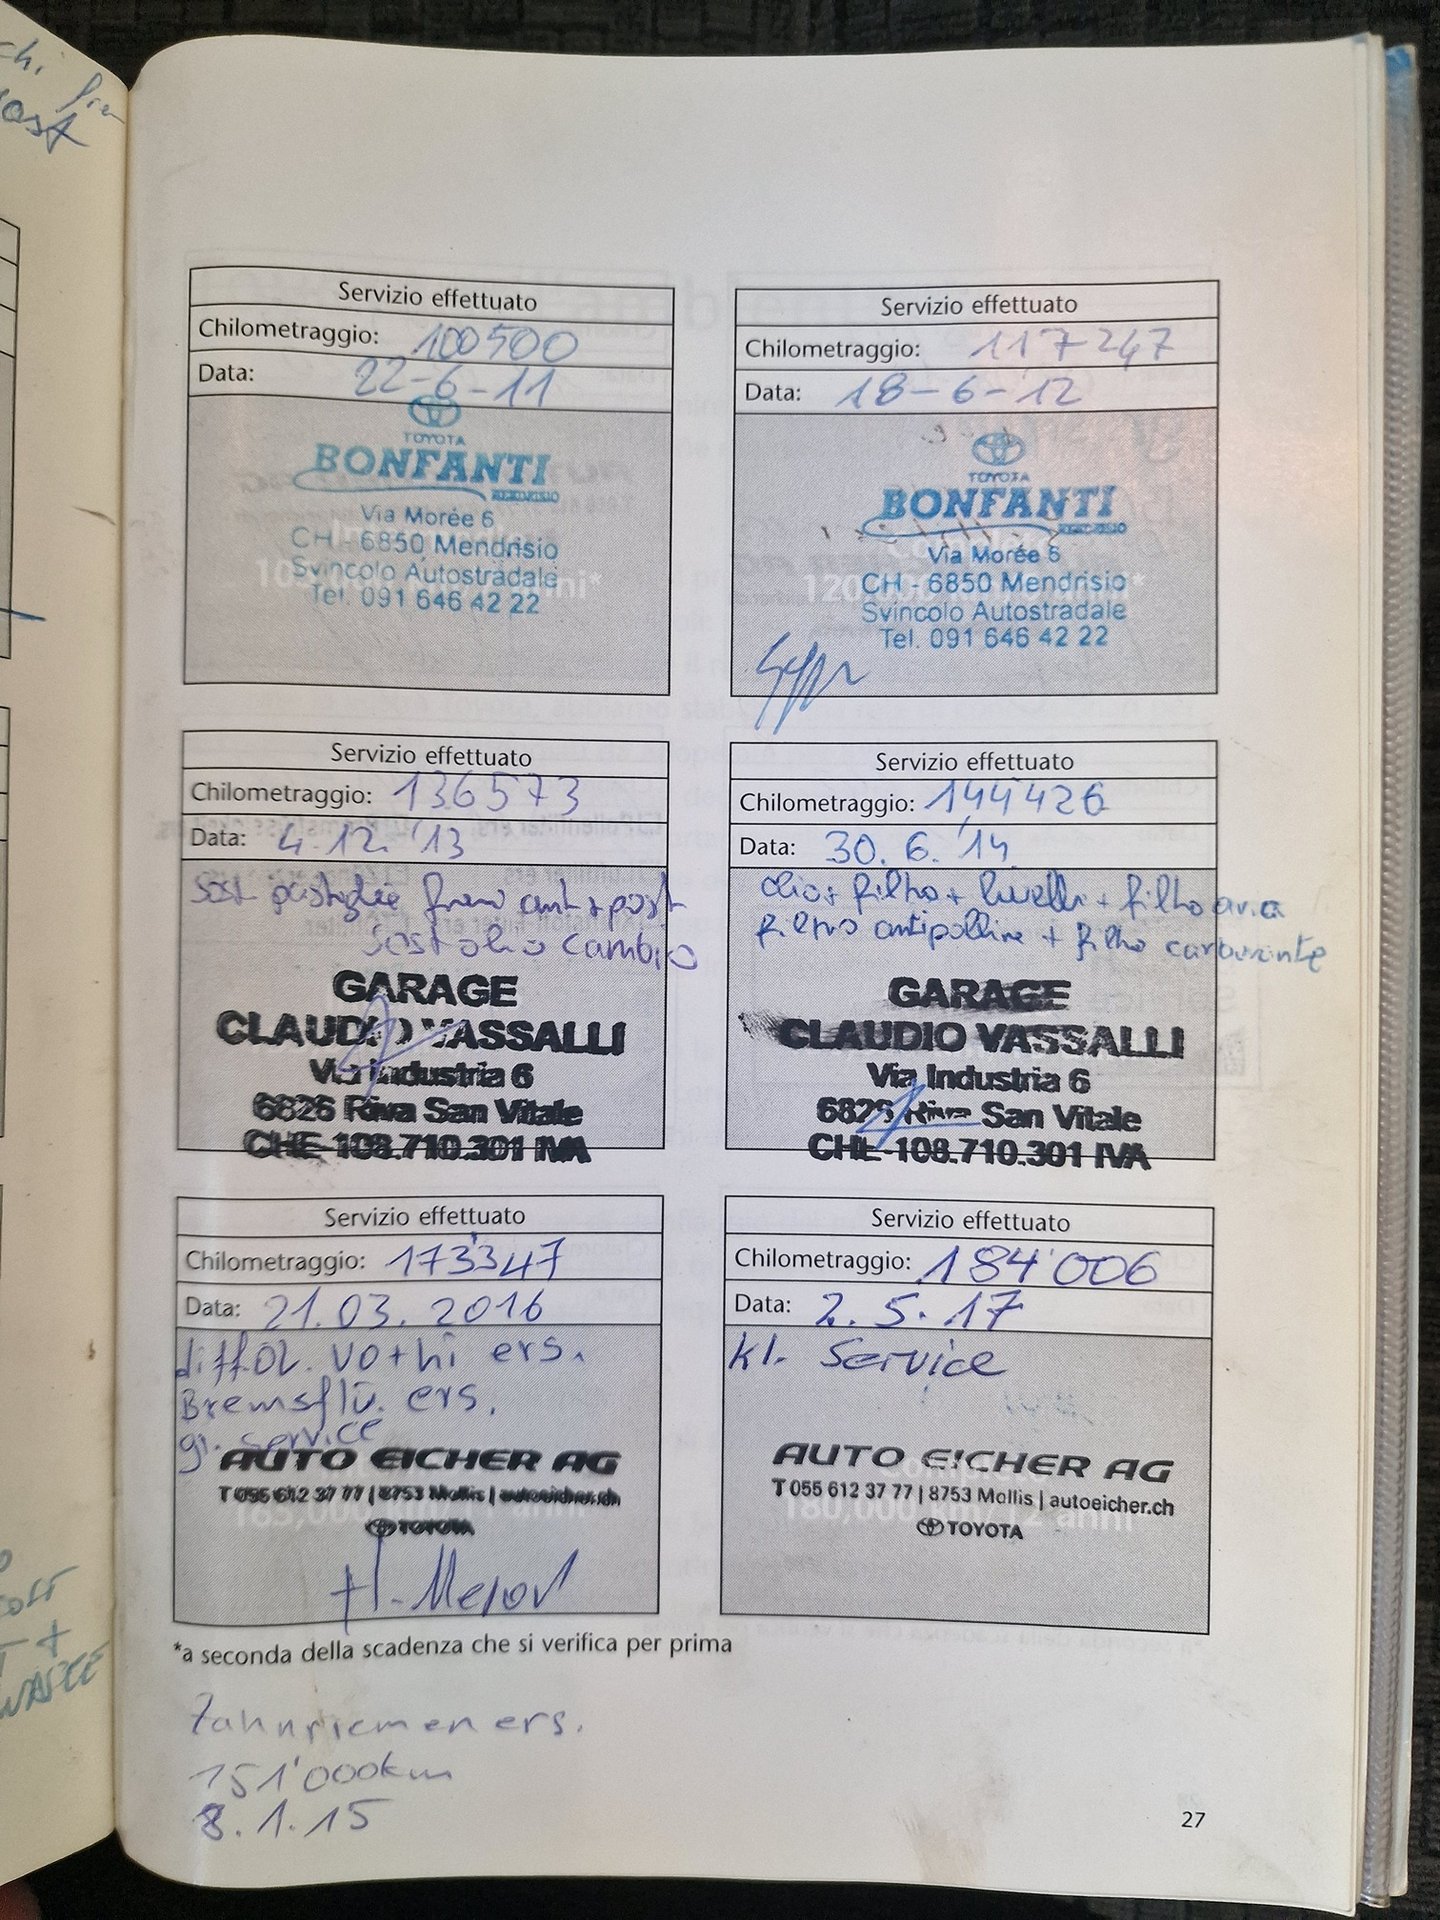 Servizio effettuato
Chilometraggio: 100500
Data: 22-6-11
TOYOTA
BONFANTI
MENDRISIO
Via Morée 6
CH - 6850 Mendrisio
Svincolo Autostradale
Tel. 091 646 42 22
Servizio effettuato
Chilometraggio: 117247
Data: 18-6-12
TOYOTA
BONFANTI
MENDRISIO
120,000
Via Morée 6
CH - 6850 Mendrisio
Svincolo Autostradale
Tel. 091 646 42 22
Servizio effettuato
Chilometraggio: 136573
Data: 4.12.'13
Sost pastiglie freno ant + post
Sost olio cambio
GARAGE
CLAUDIO VASSALLI
Via Industria 6
6826 Riva San Vitale
CHE-108.710.301 IVA
Servizio effettuato
Chilometraggio: 144'426
Data: 30.6.'14
olio + filtro + livelli + filtro aria
filtro antipolline + filtro carburante
GARAGE
CLAUDIO VASSALLI
Via Industria 6
6826 Riva San Vitale
CHE-108.710.301 IVA
Servizio effettuato
Chilometraggio: 173'347
Data: 21.03.2016
diffÖl. vo+hi ers.
Bremsflü. ers.
gr. service
AUTO EICHER AG
T 055 612 37 77 | 8753 Mollis | autoeicher.ch
TOYOTA
Servizio effettuato
Chilometraggio: 184'006
Data: 2.5.17
kl. Service
AUTO EICHER AG
T 055 612 37 77 | 8753 Mollis | autoeicher.ch
180,000 12 anni
TOYOTA
*a seconda della scadenza che si verifica per prima
Zahnriemen ers.
151'000km
8.1.15
27